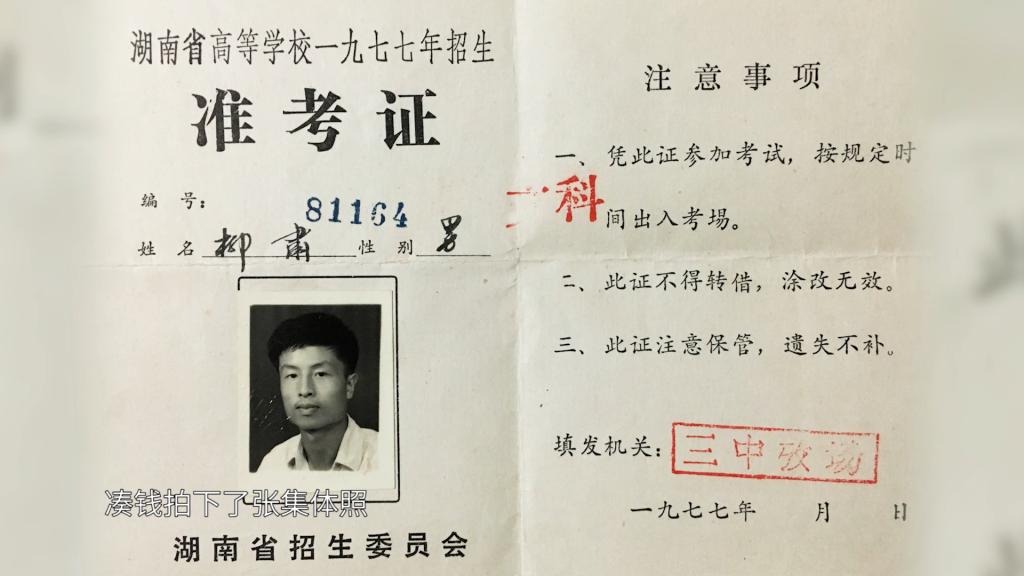 湖南省高等学校一九七七年招生
准考证
编 号: 81164
姓 名 柳肅 性 别 男
凑钱拍下了张集体照
湖南省招生委员会
注意事项
一、凭此证参加考试，按规定时
科
间出入考埸。
二、此证不得转借，涂改无效。
三、此证注意保管，遗失不补。
填发机关: 三中攷场
一九七七年 月 日